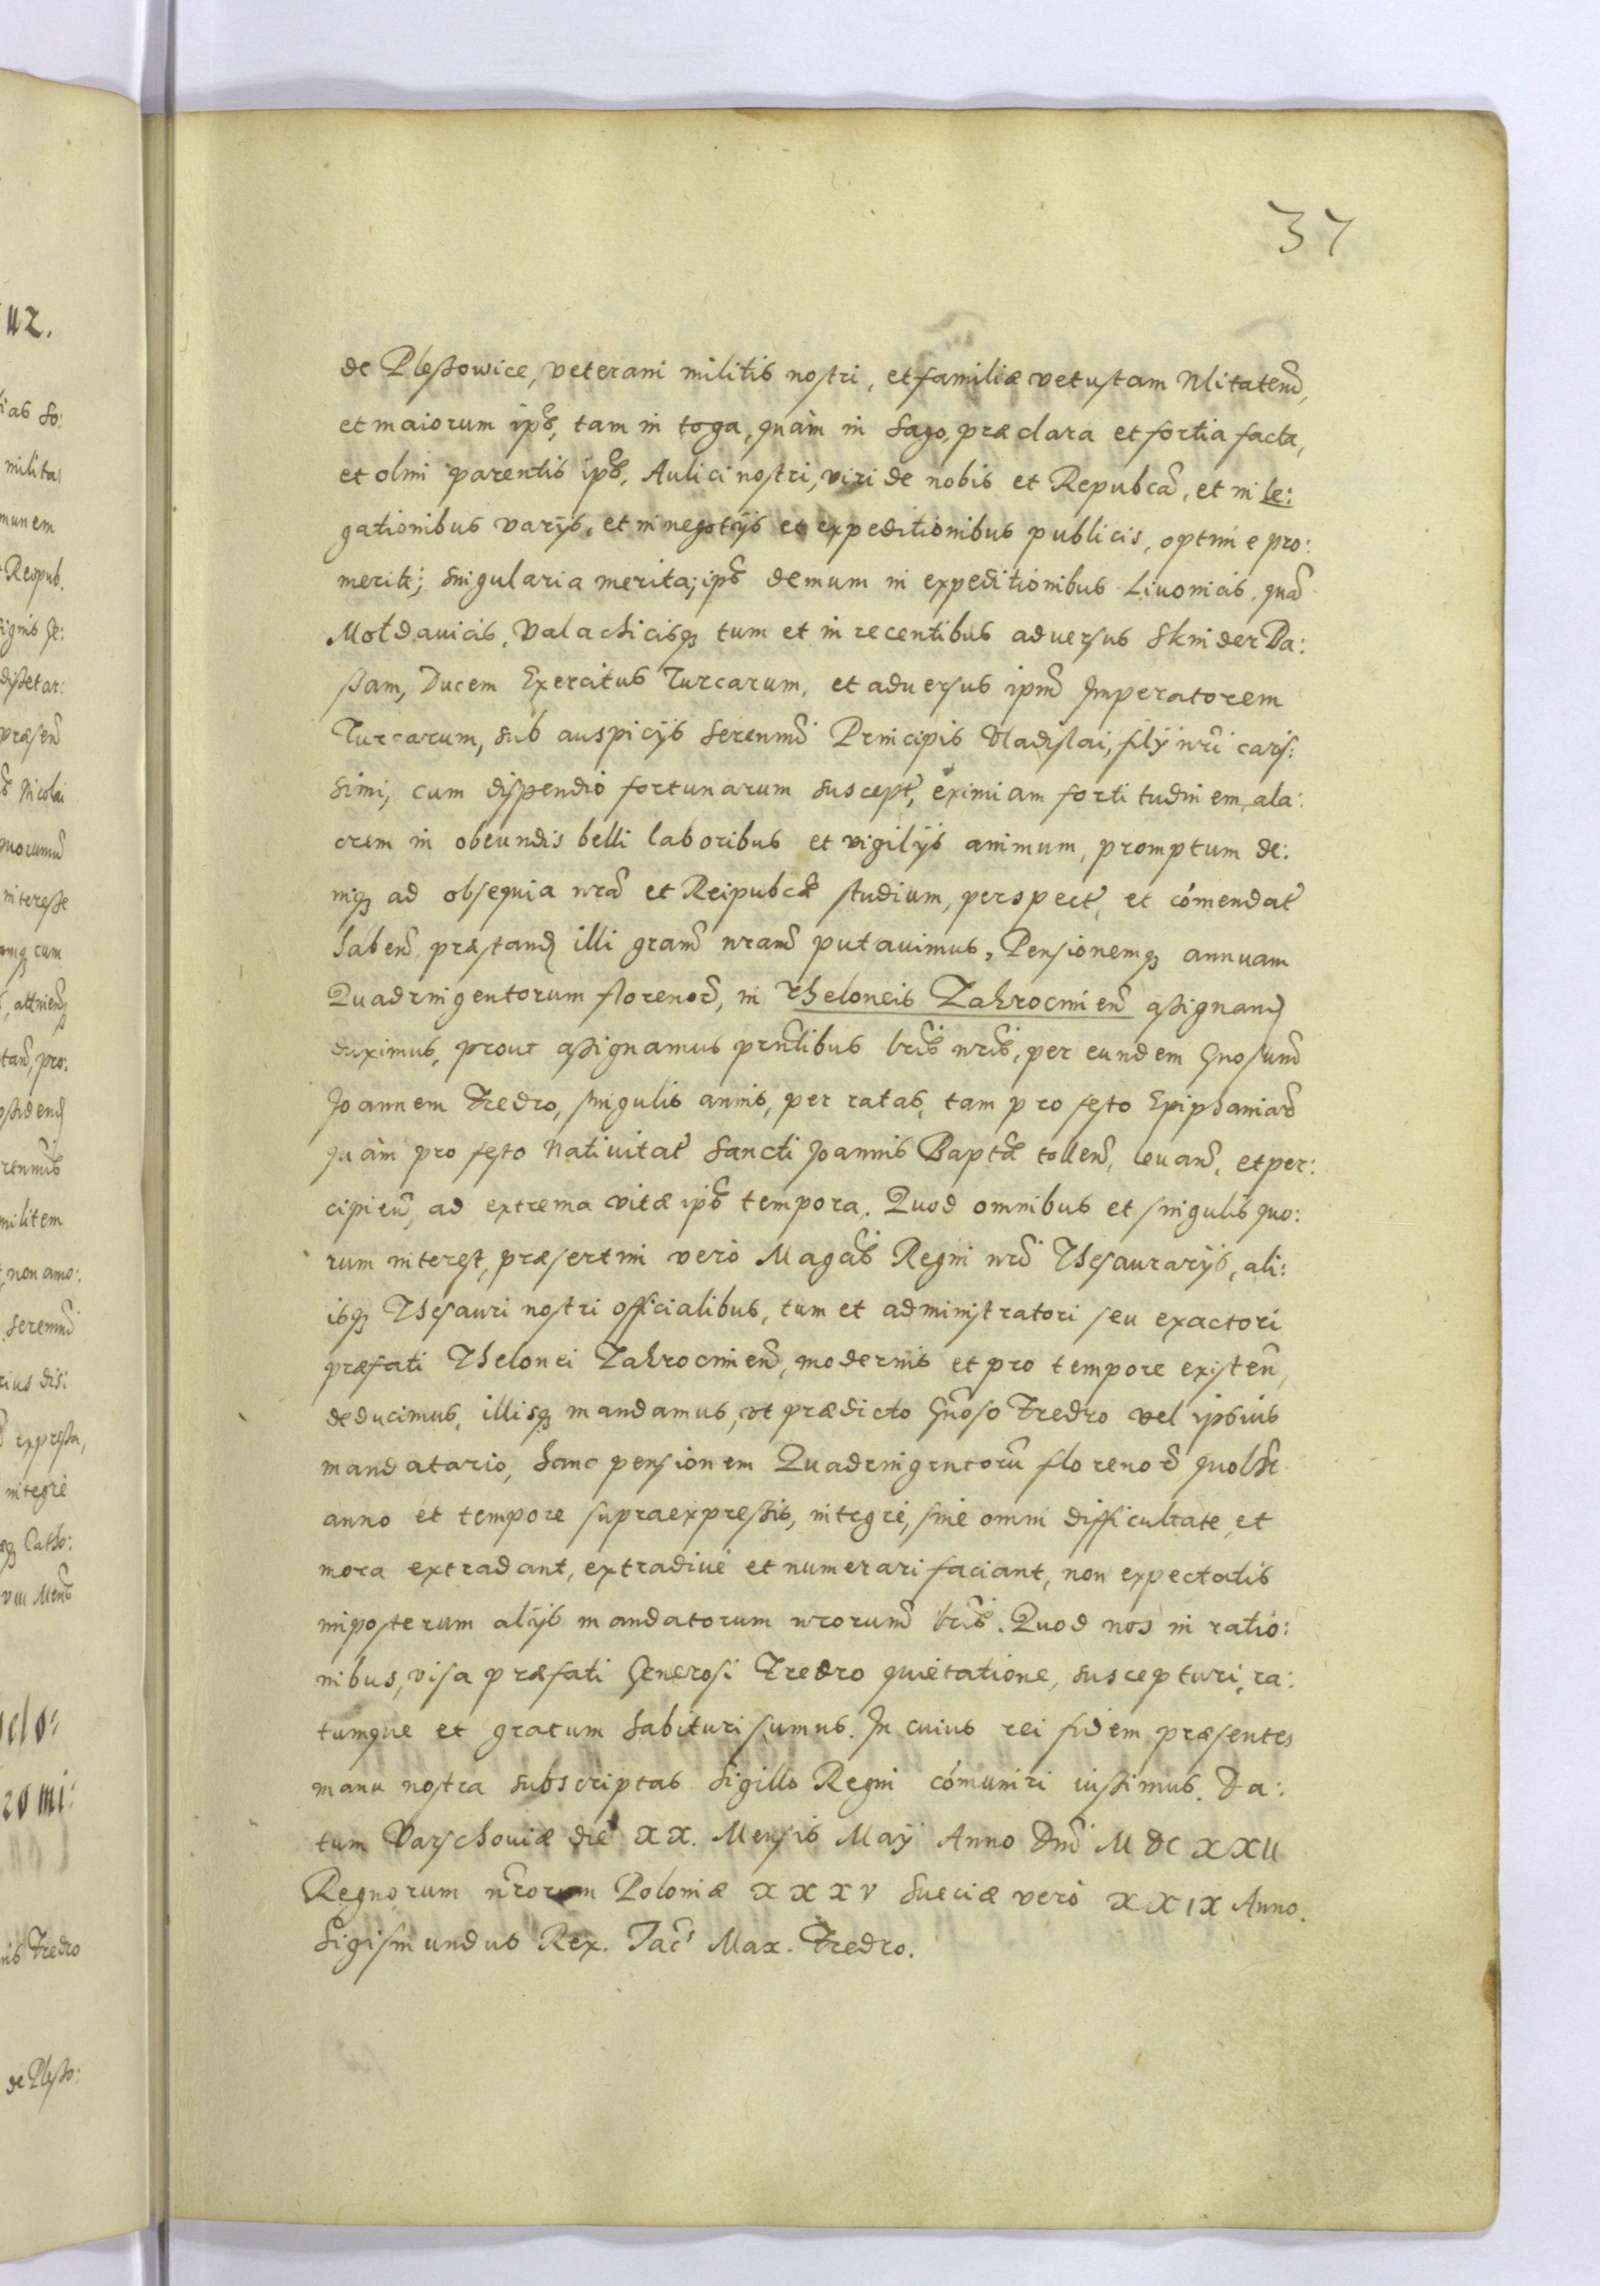 37
de Pleszowice, veterani militis nostri, et familiæ vetustam Nlitatem̃,
et maiorum ip̃s, tam in toga, quàm in sago, præclara et fortia facta,
et olim parentis ip̃s, Aulici nostri, viri de nobis et Repubcã, et in le:
gationibus varijs, et in negotijs et expeditionibus publicis, optime pro:
meriti; singularia merita; ip̃s demum in expeditionibus Livonicis, quã
Moldavicis, Valachicisq́ tum et in recentibus adversus Skinder Ba:
szam, Ducem Exercitus Turcarum, et adversus ipm̃ Imperatorem
Turcarum, sub auspicijs Serenm̃i Principis Vladislai, filij nr̃i caris:
simi, cum dispendio fortunarum suscept̃, eximiam fortitudinem, ala:
crem in obeundis belli laboribus et vigilijs animum, promptum de:
niq́ ad obsequia nr̃a et Reipubcæ studium, perspect̃, et com̃endat̃
habeñ, præstand̃ illi gram̃ nram̃ putavimus, Pensionemq́ annuam
Quadringentorum florenor̃, in Theloneis Zakrocimieñ assignand̃
duximus, prout assignamus prñtibus lr̃is nr̃is, per eundem Gnosum̃
Joannem Fredro, singulis annis, per ratas, tam pro festo Epiphaniar̃
quàm pro festo Nativitat̃ Sancti Joannis Baptæ tolleñ, levañ, et per:
cipieñ, ad extrema vitæ ip̃s tempora. Quod omnibus et singulis quo:
rum interest, præsertim verò Magcis̃ Regni nr̃i Thesaurarijs, ali:
isq́ Thesauri nostri officialibus, tum et administratori seu exactori
præfati Thelonei Zakrocimieñ, modernis et pro tempore existeñ,
deducimus, illisq́ mandamus, ut prædicto Gñoso Fredro vel ipsius
mandatario, hanc pensionem Quadringentorũ florenor̃ quolibt
anno et tempore supraexpressis, integrè, sine omni difficultate et
mora extradant, extradive et numerari faciant, non expectatis
inposterum alijs mandatorum nrorum̃ lr̃is. Quod nos in ratio:
nibus, visa præfati Generosi Fredro quietatione, suscepturi, ra:
tumque et gratum habituri sumus. In cuius rei fidem præsentes
manu nostra subscriptas Sigillo Regni com̃uniri iussimus. Da:
tum Varschoviæ die XX. Mensis Maij Anno Dñi M DC XXII
Regnorum nr̃orum Poloniæ XXXV Sueciæ verò XXIX Anno.
Sigismundus Rex. Jac̃ Max. Fredro.